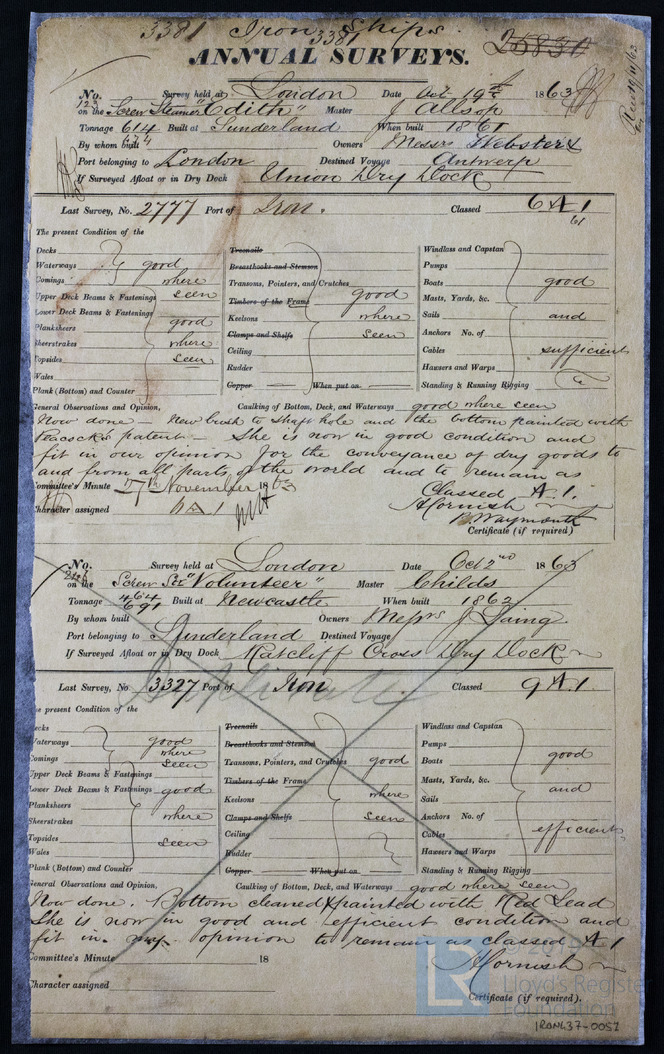 3381 Iron Ships. 25830
3381
ANNUAL SURVEYS.
No. 123 Survey held at London Date Oct 19th 1863
on the Screw Steamer "Edith" Master J Allsop
Tonnage 614 Built at Sunderland When built 1861
By whom built Owners Messrs Webster &
Port belonging to London Destined Voyage Antwerp
If Surveyed Afloat or in Dry Dock Union Dry Dock
Last Survey, No. 2777 Port of Iron. Classed 6 A 1
61
The present Condition of the
Decks
Waterways good
Comings where
Upper Deck Beams & Fastenings seen
Lower Deck Beams & Fastenings
Planksheers good
Sheerstrakes where
Topsides seen
Wales
Plank (Bottom) and Counter
Treenails
Breasthooks and Stemson
Transoms, Pointers, and Crutches
Timbers of the Frame good
Keelsons where
Clamps and Shelfs seen
Ceiling
Rudder
Copper When put on
Windlass and Capstan
Pumps
Boats good
Masts, Yards, &c.
Sails and
Anchors No. of
Cables sufficient
Hawsers and Warps
Standing & Running Rigging
General Observations and Opinion, Caulking of Bottom, Deck, and Waterways good where seen
Now done — New bush to shaft hole and the bottom painted with
Peacock's patent — She is now in good condition and
fit in our opinion for the conveyance of dry goods to
and from all parts of the world and to remain as
Committee's Minute 27th November 1863 Classed A. 1.
Character assigned 6 A 1 Hornish
B. Waymouth
Certificate (if required)
No. Survey held at London Date Oct 2nd 1863
on the Screw Str "Volunteer" Master Childs
Tonnage 464 691 Built at Newcastle When built 1862
By whom built Owners Messrs J Laing
Port belonging to Sunderland Destined Voyage
If Surveyed Afloat or in Dry Dock Ratcliff Cross Dry Dock
Duplicate
Last Survey, No 3327 Port of Iron Classed 9 A. 1.
The present Condition of the
Decks
Waterways good
Comings where seen
Upper Deck Beams & Fastenings
Lower Deck Beams & Fastenings good
Planksheers
Sheerstrakes where
Topsides seen
Wales
Plank (Bottom) and Counter
Treenails
Breasthooks and Stemson
Transoms, Pointers, and Crutches good
Timbers of the Frame
Keelsons where
Clamps and Shelfs seen
Ceiling
Rudder
Copper When put on
Windlass and Capstan
Pumps
Boats good
Masts, Yards, &c.
Sails and
Anchors No. of
Cables efficient
Hawsers and Warps
Standing & Running Rigging
General Observations and Opinion, Caulking of Bottom, Deck, and Waterways good where seen
Now done. Bottom cleaned & painted with Red Lead
She is now in good and efficient condition and
fit in my opinion to remain as classed A 1
Committee's Minute 18 Hornish
Character assigned Certificate (if required).
LR
Lloyd's Register
Foundation
IRON637-0052